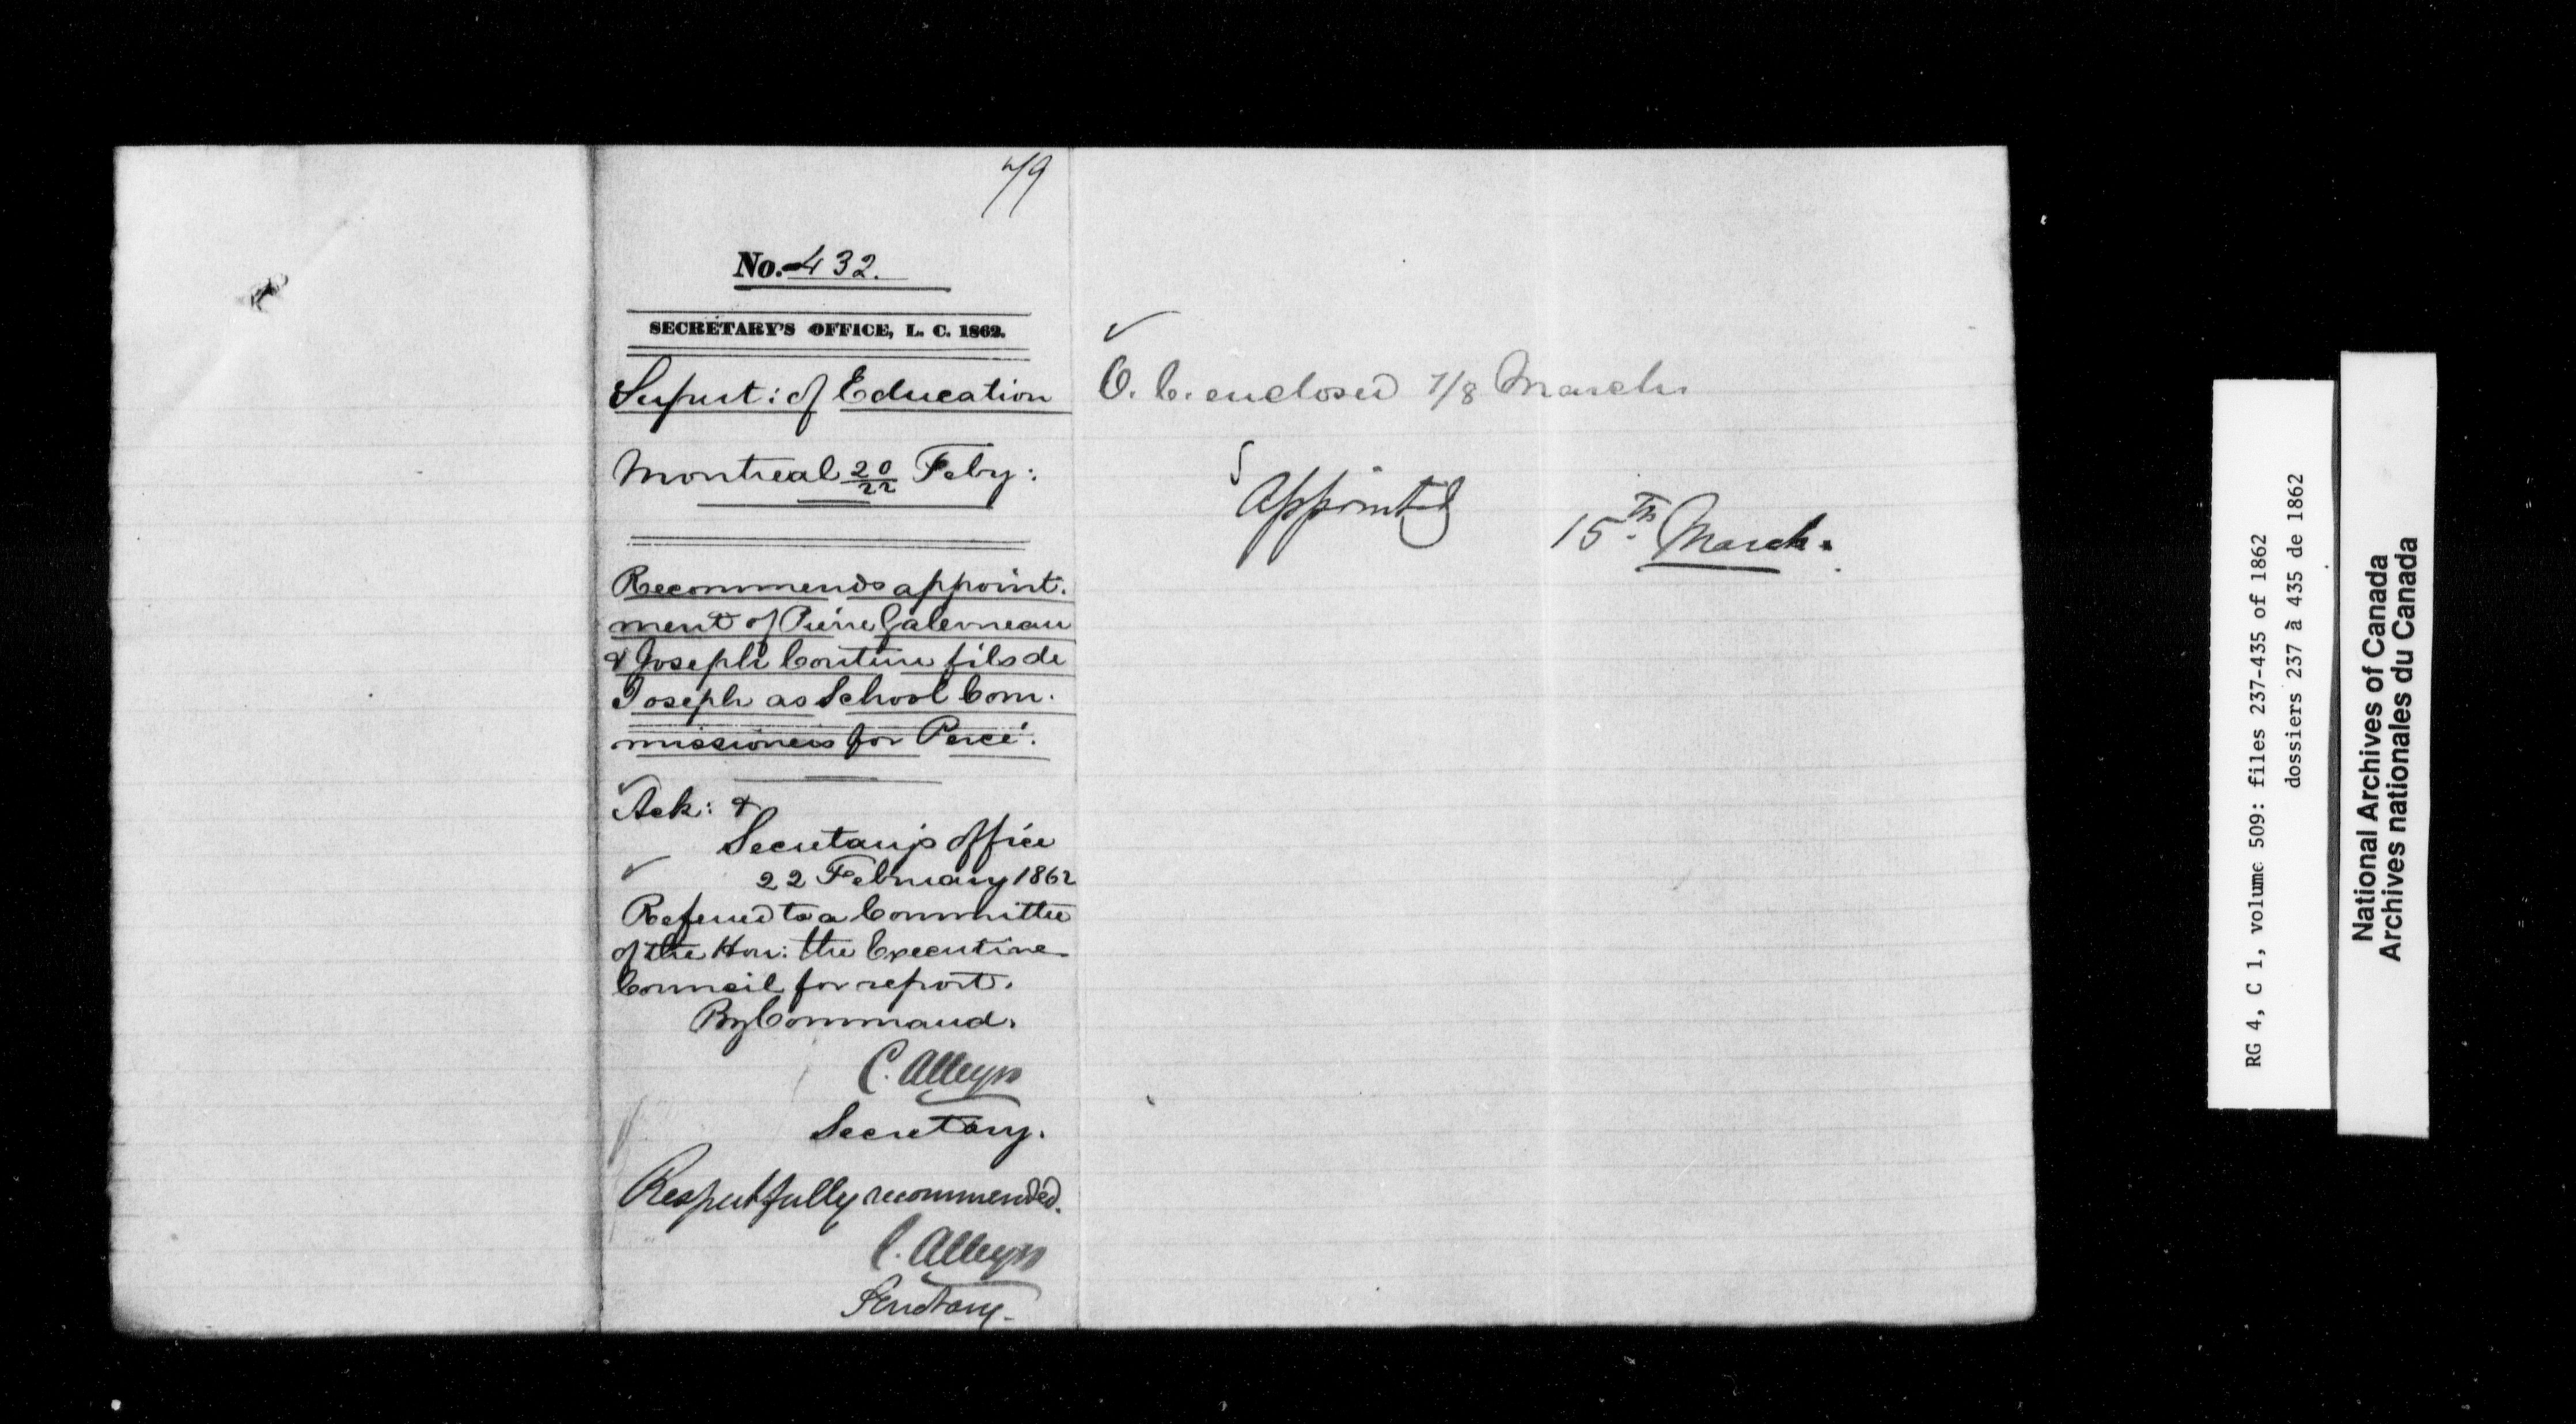 7/9
No. 432.
SECRETARY'S OFFICE, L. C. 1862.
Supert: of Education
Montreal 20/22 Feby:
Recommends appoint.
ment of Pierre Galerneau
& Joseph Couture fils de
Joseph as School Com.
missioners for Percé.
Ack: &
Secretary's Office
22 February 1862
Referred to a Committee
of the Hon: the Executive
Council for report.
By Command.
C. Alleyn
Secretary.
Respectfully recommended.
C. Alleyn
Secretary.
O. C. enclosed 7/8 March
Appointed
15th March.
RG 4, C 1, volume 509: files 237-435 of 1862
dossiers 237 à 435 de 1862
National Archives of Canada
Archives nationales du Canada